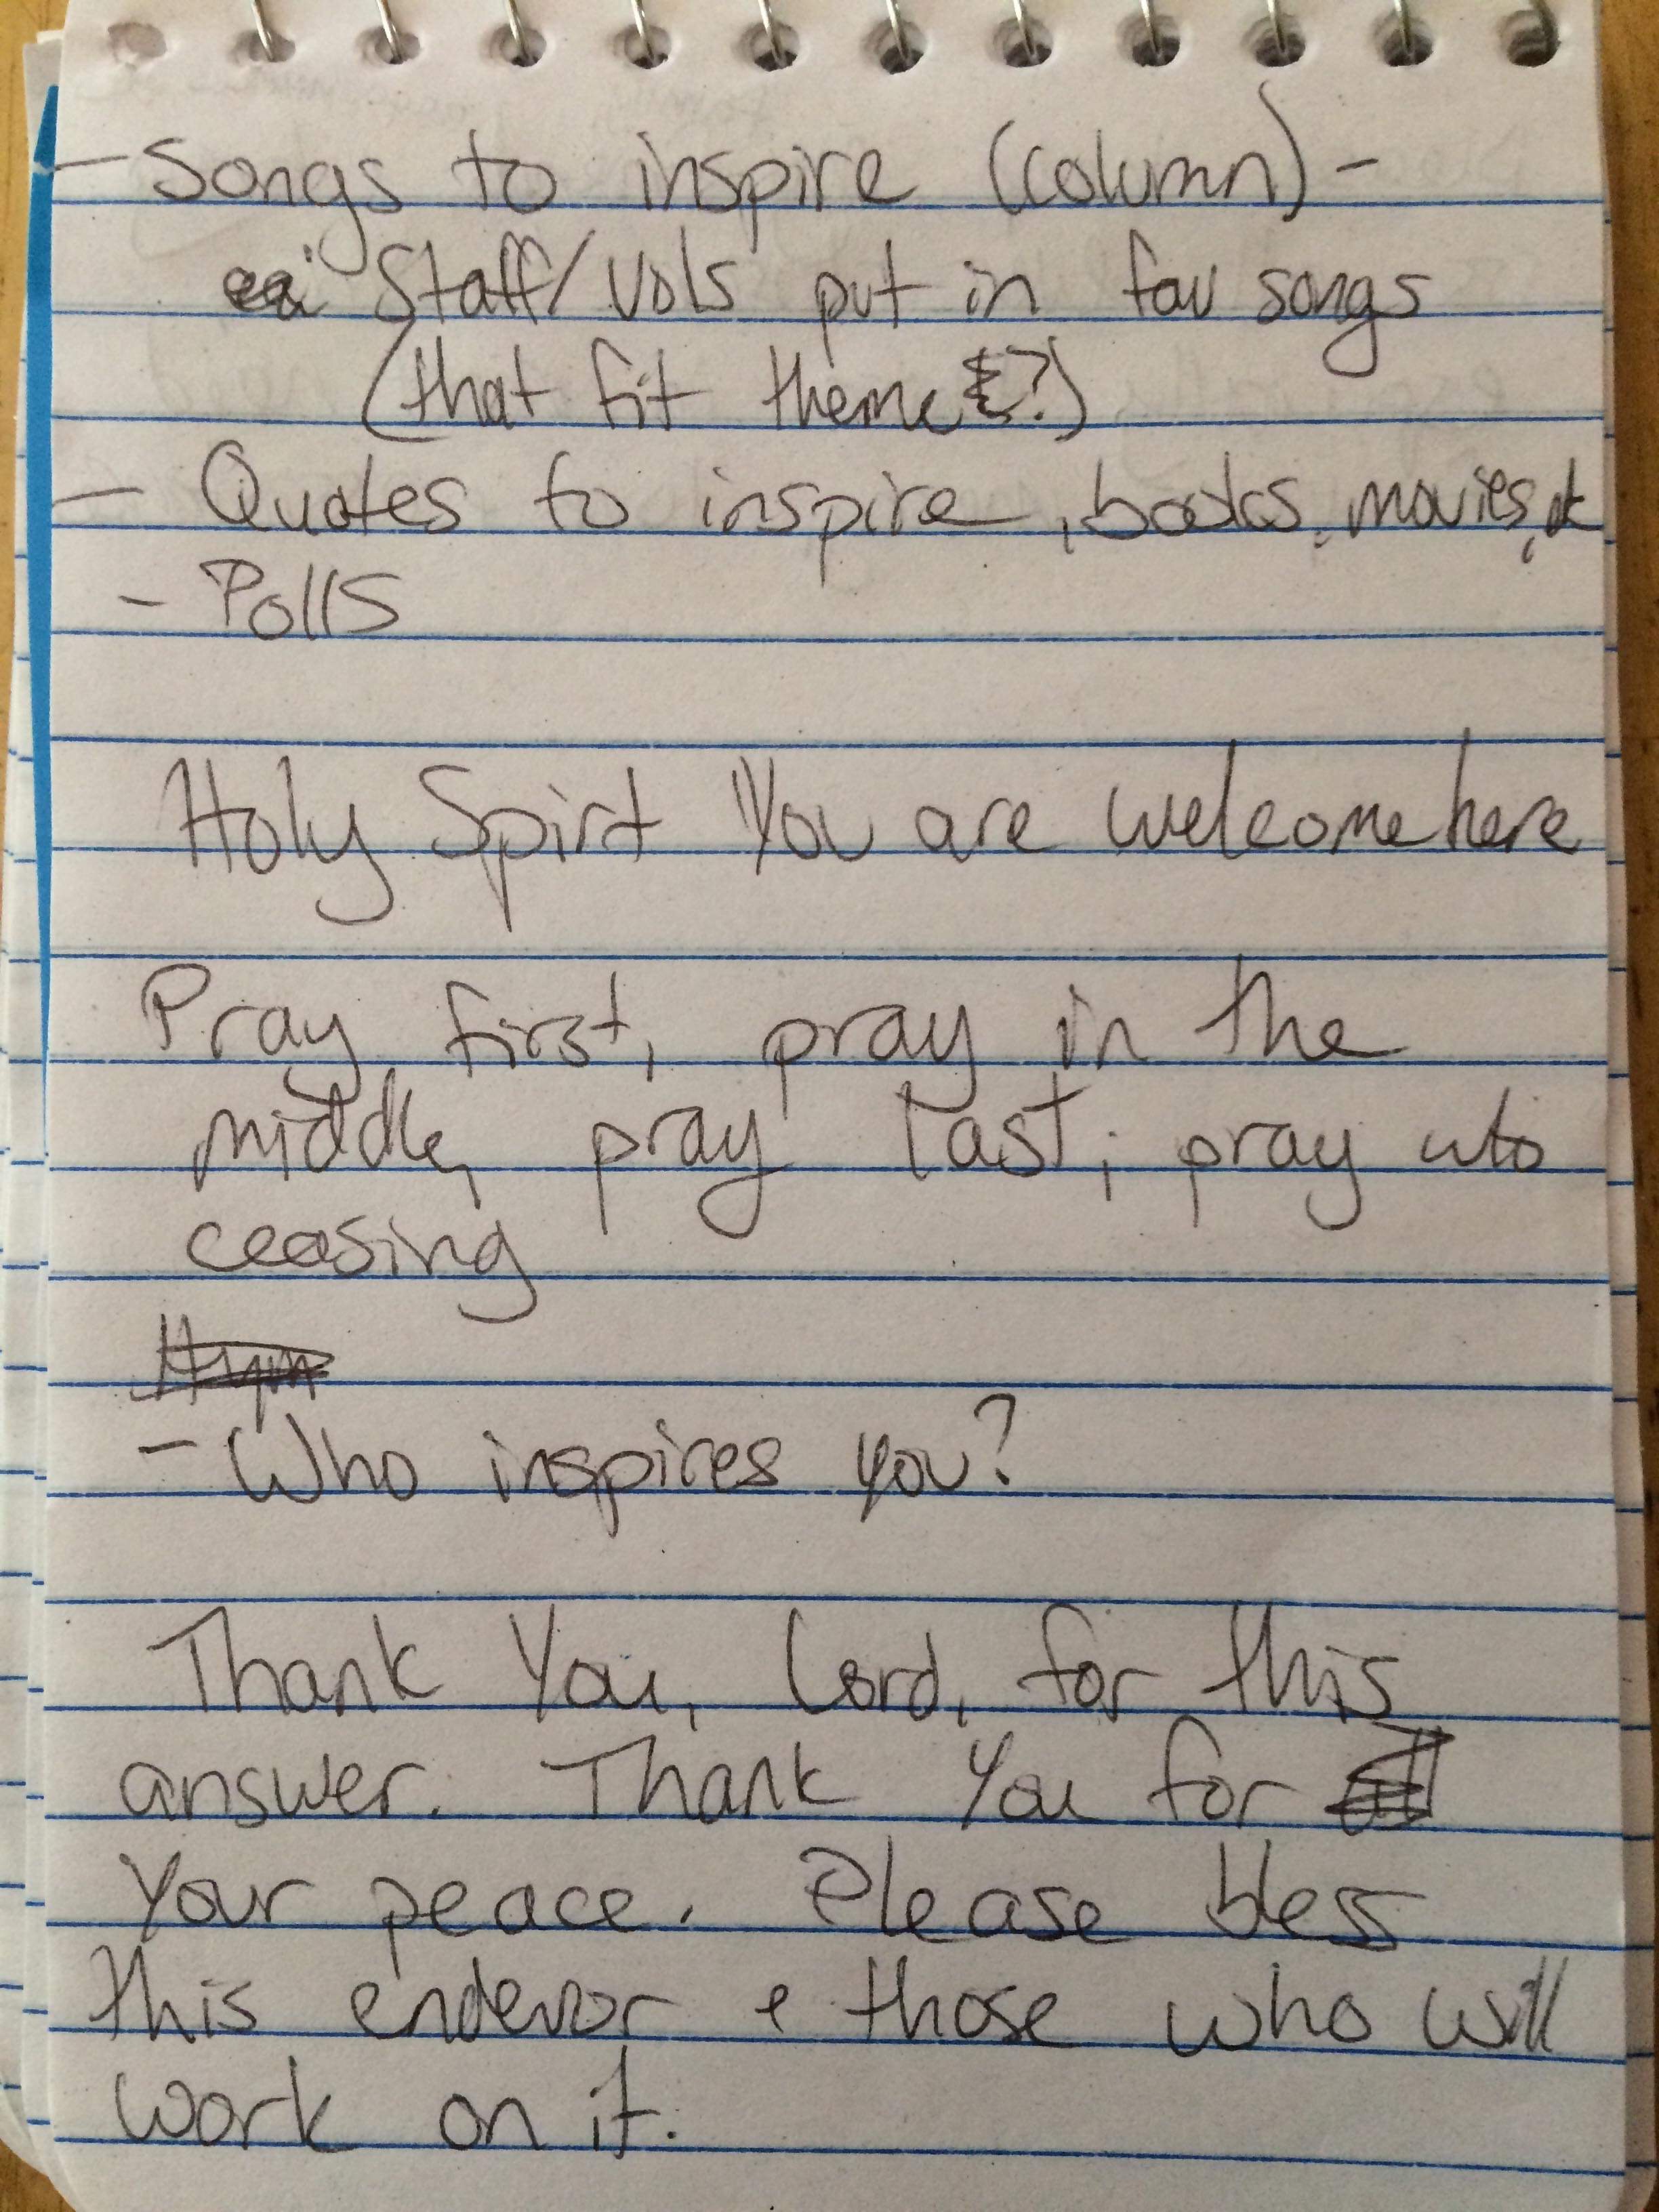 - Songs to inspire (column) -
Staff/Vols put in fav songs
(that fit theme?)
- Quotes to inspire, books, movies,
- Polls
Holy Spirt You are welcome here
Pray first, pray in the
middle, pray last; pray w/o
ceasing
- Who inspires you?
Thank You, Lord, for this
answer. Thank You for
Your peace. Please bless
this endevor & those who will
work on it.